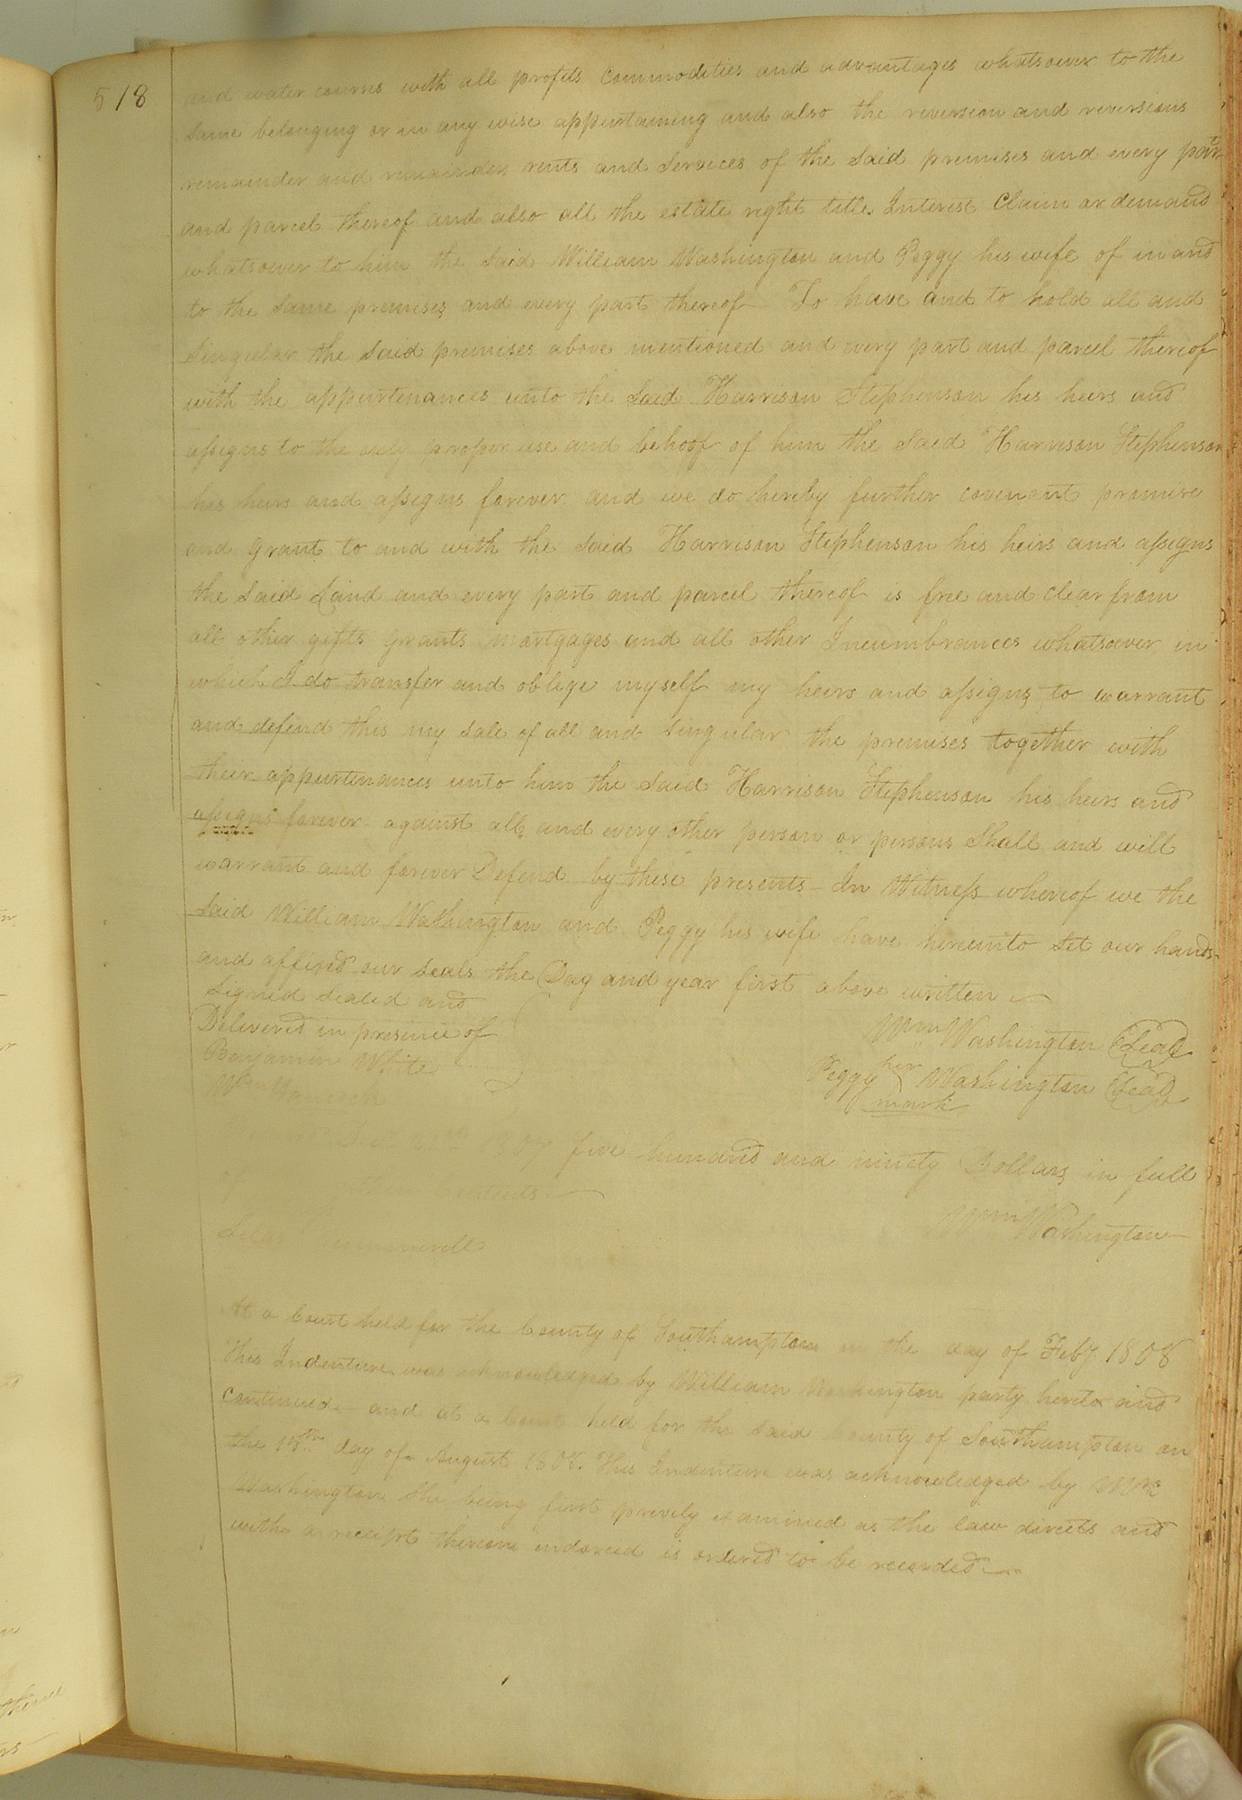 518
and water courses with all profits commodities and advantages whatsoever to the
same belonging or in any wise appurtaining and also the reversion and reversions
remainder and remainders rents and services of the said premises and every part
and parcel thereof and also all the estate right title Interest Claim or demand
whatsoever to him the said William Washington and Peggy his wife of in and
to the same premises and every part thereof To have and to hold all and
Singular the said premises above mentioned and every part and parcel thereof
with the appurtenances unto the said Harrison Stephenson his heirs and
assigns to the only proper use and behoof of him the said Harrison Stephenson
his heirs and assigns forever and we do hereby further covenant promise
and grant to and with the said Harrison Stephenson his heirs and assigns
the said Land and every part and parcel thereof is free and clear from
all other gifts grants mortgages and all other Incumbrances whatsoever in
which I do transfer and oblige myself my heirs and assigns to warrant
and defend this my sale of all and singular the premises together with
their appurtenances unto him the said Harrison Stephenson his heirs and
assigns forever against all and every other person or persons Shall and will
warrant and forever Defend by these presents - In Witness whereof we the
said William Washington and Peggy his wife have hereunto set our hands
and affixed our seals the Day and year first above written
Signed sealed and
Delivered in presence of
Benjamin White
Wm Washington Seal
Peggy her Washington Seal
mark
1807 five hundred and ninety Dollars in full
Wm Washington
At a Court held for the County of Southampton on the day of Feby 1808
This Indenture was acknowledged by William Washington party hereto and
Continued - and at a Court held for the said County of Southampton on
the day of August 1808. This Indenture was acknowledged by
Washington she being first privily examined as the law directs and
with a receipt thereon indorsed is ordered to be recorded